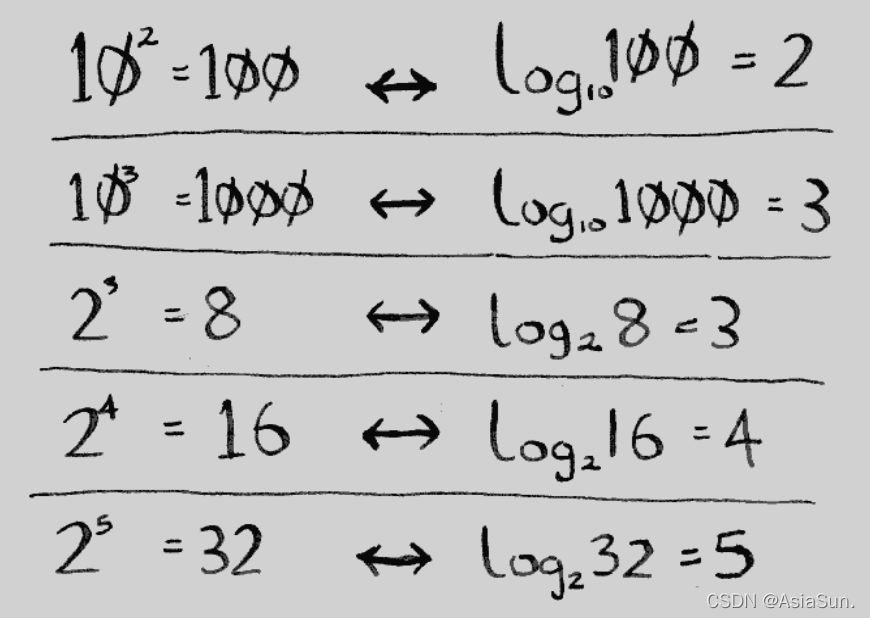 10² = 100 ↔ log₁₀100 = 2
10³ = 1000 ↔ log₁₀1000 = 3
2³ = 8 ↔ log₂8 = 3
2⁴ = 16 ↔ log₂16 = 4
2⁵ = 32 ↔ log₂32 = 5
CSDN @AsiaSun.